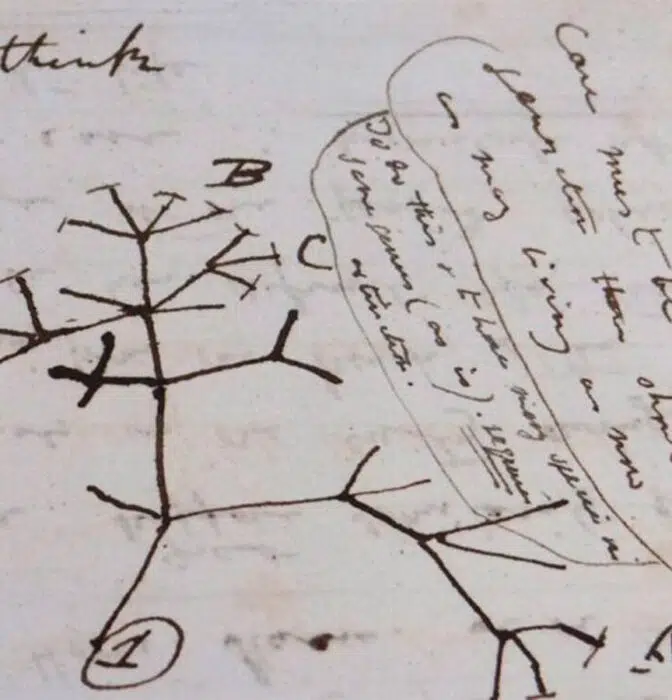 think
Case must be
generation then shoul
as many living as now
To do this & to have many species in
same genus (as is). requires
extinction.
B
C
1